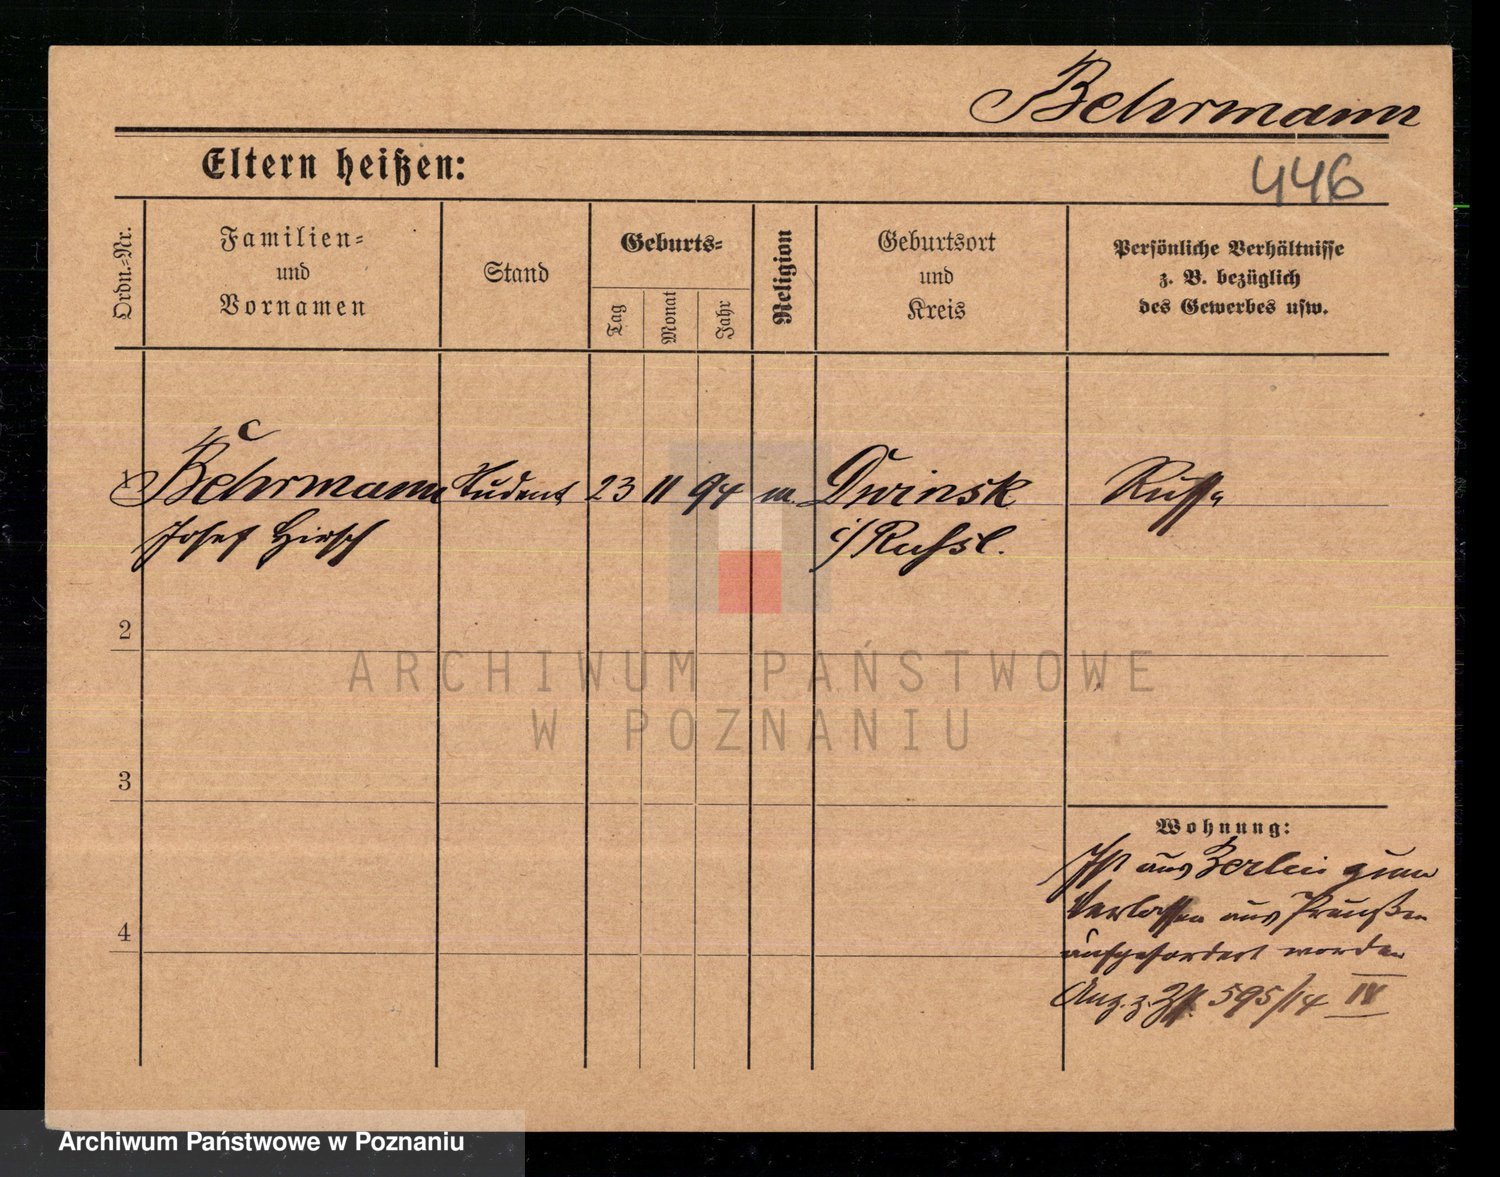 Behrmann
446
Eltern heißen:
Ordn.-Nr.
Familien-
und
Vornamen
Stand
Geburts-
Tag
Monat
Jahr
Religion
Geburtsort
und
Kreis
Persönliche Verhältnisse
z. B. bezüglich
des Gewerbes usw.
1 Behrmann Student 23 11 94 m. Dwinsk Russe
Josef Hirsch i/Rußl.
2
3
4
Wohnung:
Ist aus Berlin zum
Verlassen aus Preußen
aufgefordert worden
Anz. z. 595/14 IV
ARCHIWUM PAŃSTWOWE
W POZNANIU
Archiwum Państwowe w Poznaniu